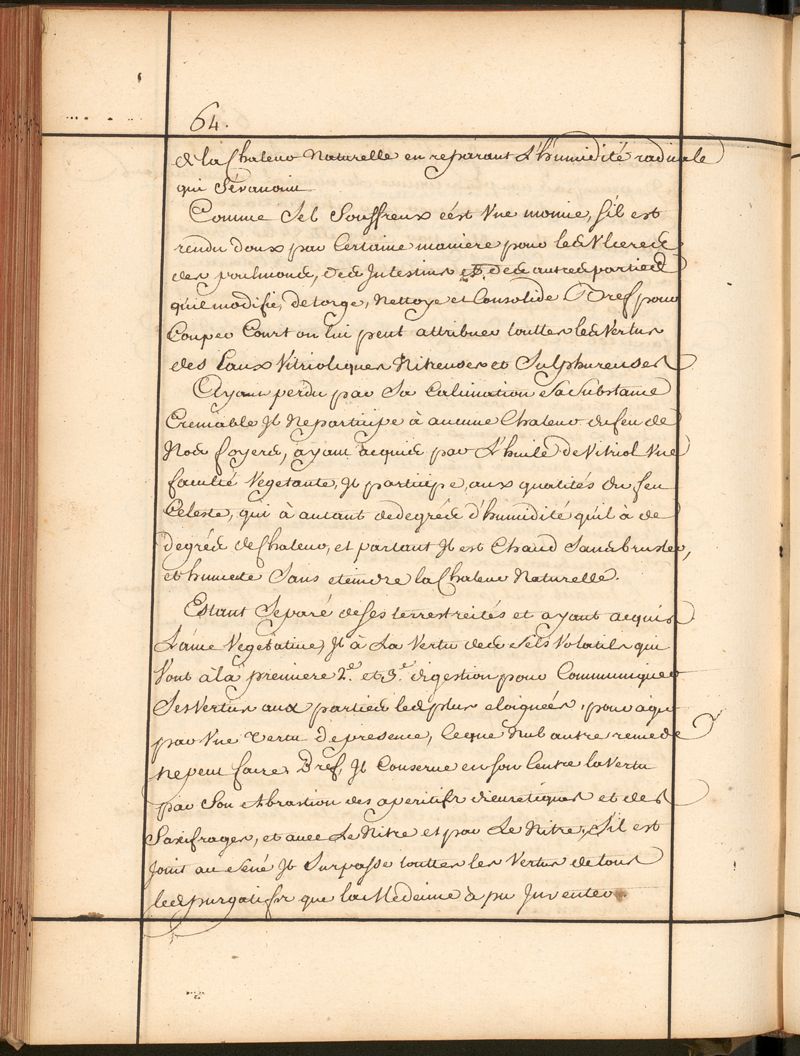 64.
de la Chaleur Naturelle en reparant L'humidité radicale
qui S'évanouit
Comme Sel Souffreux c'est Une momie, S'il est
rendu doux par Certaine maniere pour les Ulceres
des poulmons, des Intestins et des autres parties
qu'il modifie, deterge, Nettoye et Consolide Bref pour
Couper Court on lui peut attribuer touttes les Vertus
des Eaux Vitrioliques Nitreuses et Sulphureuses
Ayant perdu par Sa Calcination Sa Substance
Cremable Il Ne participe à aucune Chaleur du feu de
Nos foyers, ayant acquis par L'huile de Vitriol Une
faculté Vegetante, Il participe aux qualités du feu
Celeste, qui à autant de degrés d'humidité qu'il à de
degrés de Chaleur, et partant Il est Chaud Sans bruster,
et humecte Sans eteindre la Chaleur Naturelle.
Estant Separé de ses terrestreités et ayant acquis
L'ame Vegetative, Il à La Vertu des Sels Volatils qui
Vont à la premiere 2.e et 3.e digestion pour Communiquer
Ses Vertus aux parties les plus eloignées, pour agir
par Une Vertu de presence, Ce que Nul autre remede
Ne peut faire. Bref, Il Conserve en son Centre la Vertu
par Son Abrastion des aperitifs diuretiques et des
Saxifrages, et avec Le Nitre et par Le Nitre, S'il est
Joint au Séné Il Surpasse touttes les Vertus de tous
les purgatifs que la Medecine à pu Inventer.